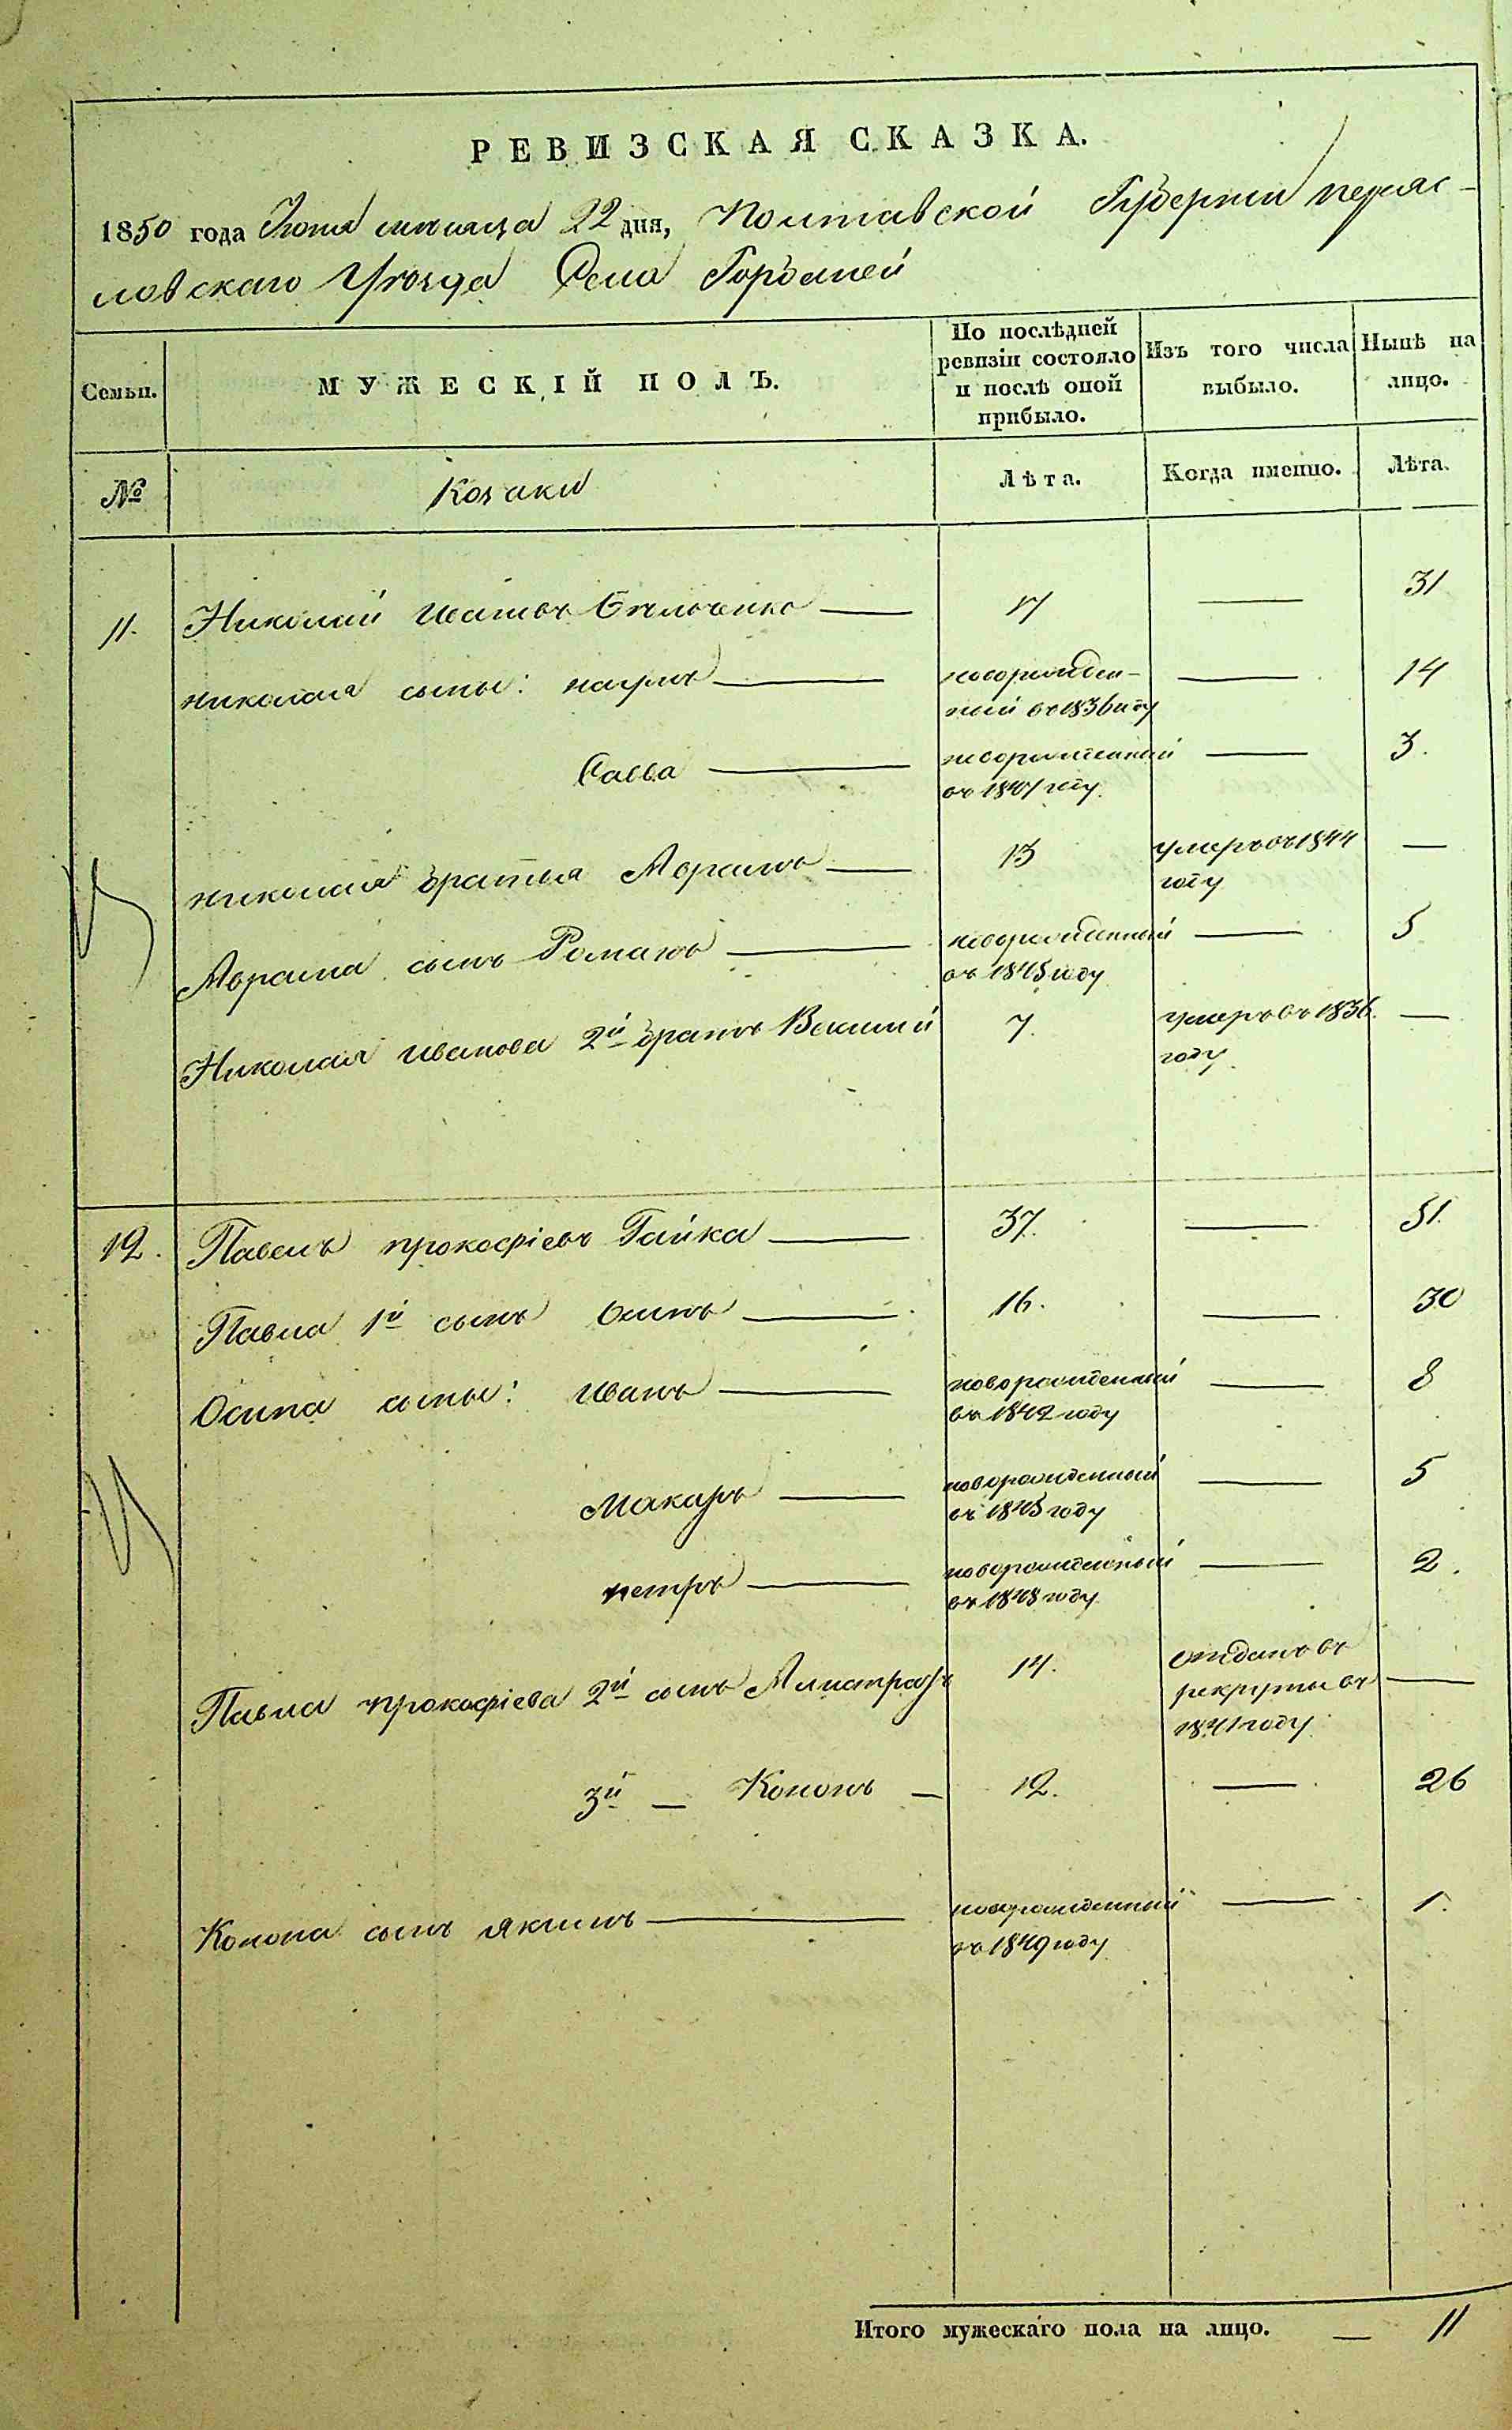 РЕВИЗСКАЯ СКАЗКА.
1850 года Іюня мѣсяца 22 дня, Полтавской Губерніи переяс-
ловскаго Уѣзда Села
Семьи.
МУЖЕСКІЙ ПОЛЪ.
По послѣдней
ревизіи состояло
и послѣ оной
прибыло.
Изъ того числа
выбыло.
Нынѣ на
лицо.
№
Козаки
Лѣта.
Когда именно.
Лѣта.
11. Николай Ивановъ Бѣльченко — 17 — 31
николая сыны: наумъ — новорожден- — 14
ный въ 1836 году
Савва — новорожденный — 3.
въ 1847 году.
николая братья Аврамъ — 13 умеръ въ 1844 —
году
Аврама сынъ Романъ — новорожденный — 5
въ 1845 году
Николая иванова 2й братъ Василій 7. умеръ въ 1836. —
году.
12. Павелъ прокофіевъ Гайка — 37. — 51.
Павла 1й сынъ Осипъ — 16. — 30
Осипа сыны: Иванъ — новорожденный — 8
въ 1842 году
Макаръ — новорожденный — 5
въ 1845 году
петръ — новорожденный — 2.
въ 1848 году.
Павла прокофіева 2й сынъ 14. отданъ въ
рекруты въ —
1841 году.
3й — Кононъ — 12. — 26
Конона сынъ якимъ — новорожденный — 1.
въ 1849 году
Итого мужескаго пола на лицо. — 11